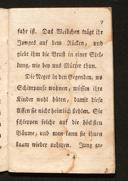 7
fahr ist. Das Weibchen trägt ihr
Junges auf dem Rücken, und
giebt ihm die Brust in einer Stel-
lung, wie bey uns Mütter thun.
Die Neger in den Gegenden, wo
Schimpanse wohnen, müssen ihre
Kinder wohl hüten, damit diese
Affen sie nicht heimlich stehlen. Sie
schleppen solche auf die höchsten
Bäume, und man kann sie ihnen
kaum wieder abjagen. Jung